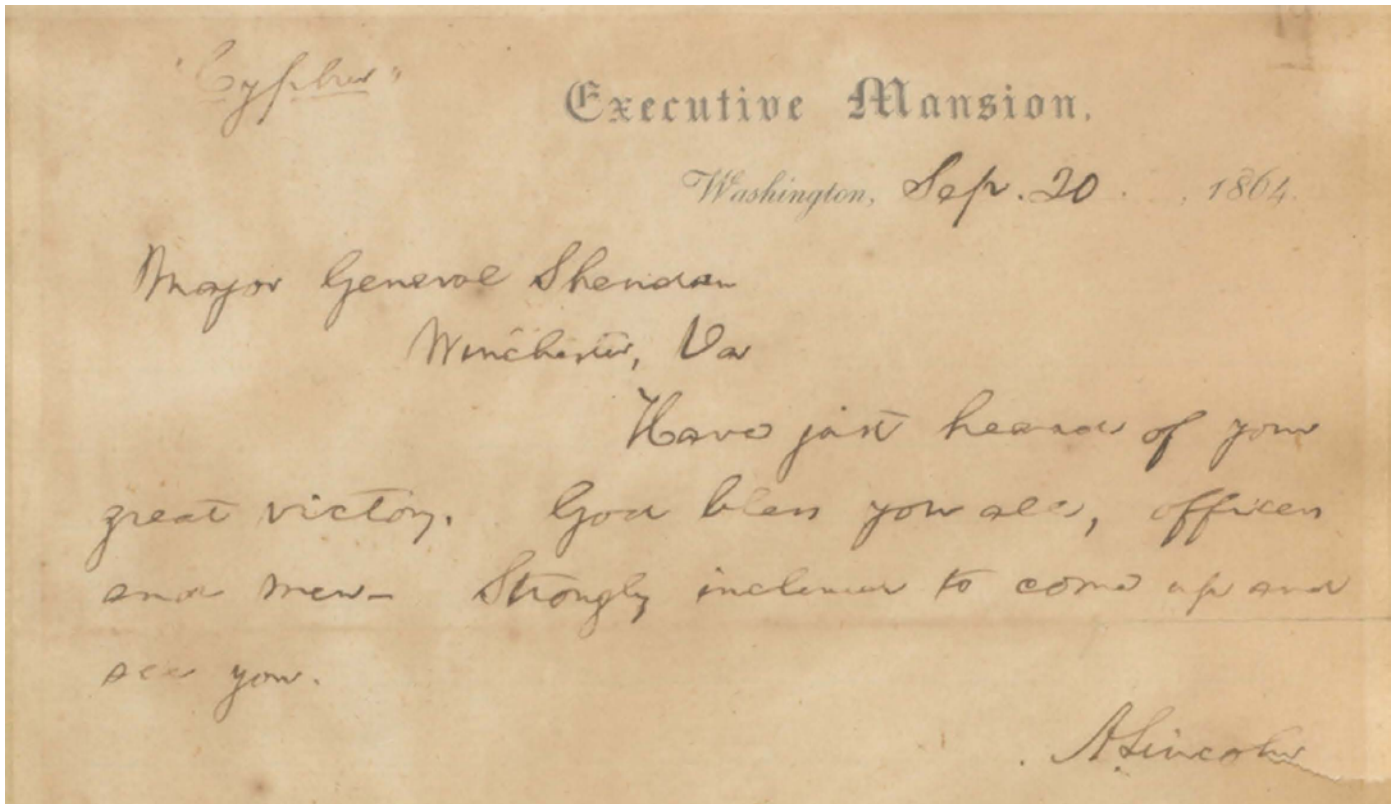 "Cypher"
Executive Mansion,
Washington, Sep. 20. , 1864.
Major General Sheridan
Winchester, Va
Have just heard of your
great victory. God bless you all, officers
and men. Strongly inclined to come up and
see you.
A. Lincoln